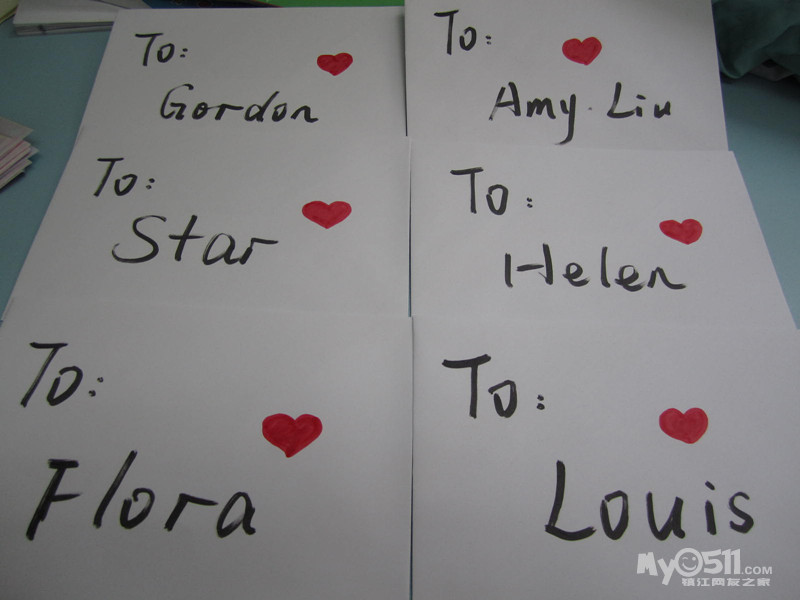 To:
Gordon
To:
Amy. Liu
To:
Star
To:
Helen
To:
Flora
To:
Louis
My0511.COM
镇江网友之家